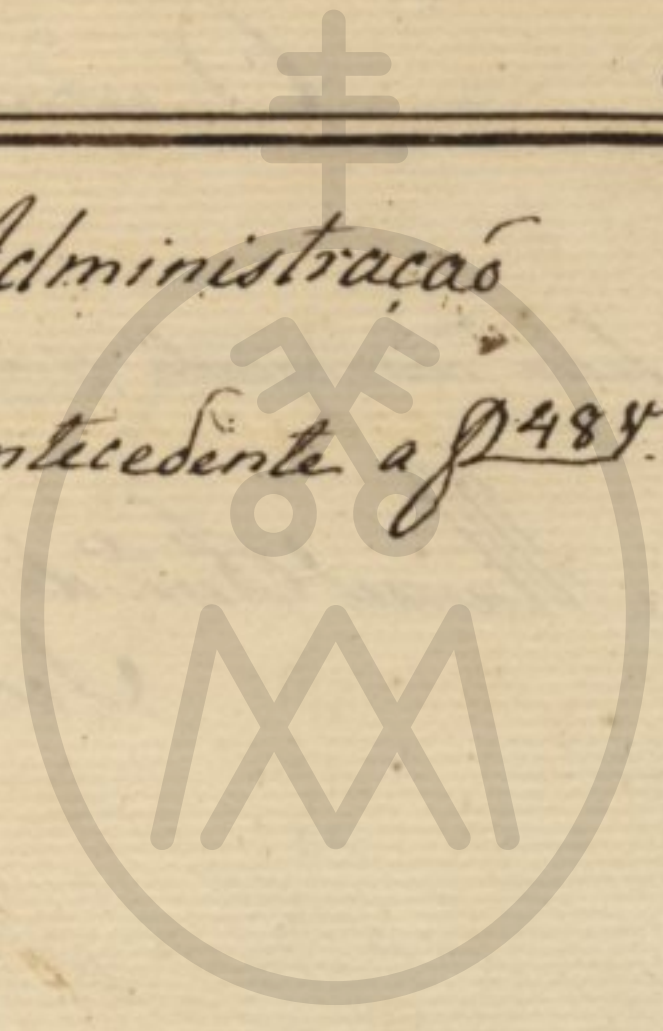 Administraçaõ
ntecedente a f 484.